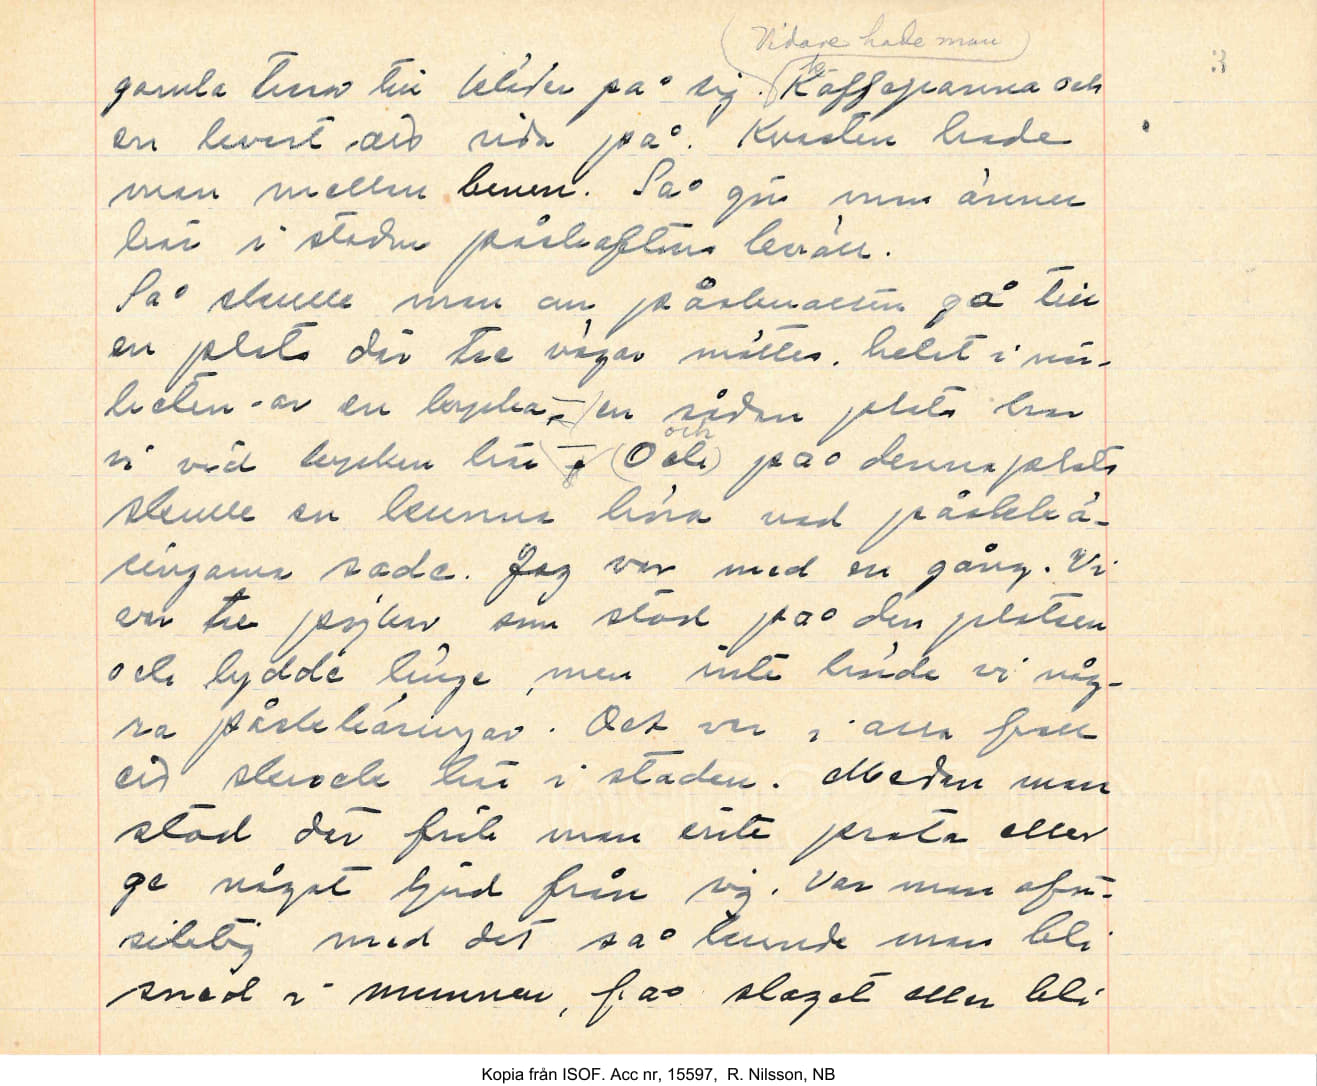 (Vidare hade man)
3
gamla trasor till kläder på sig. Kaffepanna och
en kvast att rida på. Kvasten hade
man mellan benen. Så gör man ännu
här i staden påskaftons kväll.
Så skulle man om påsknatten gå till
en plats där tre vägar möttes. helst i när-
heten av en bäcka, en sådan plats har
vi vid kyrkan här och (Och) på denna plats
skulle en kunna höra vad påskkä-
ringarna sade. Jag var med en gång. Vi
var tre pojkar som stod på den platsen
och lydde länge, men inte hörde vi någ-
ra påskkäringar. Det var i alla fall
ett skrock här i staden. Medan man
stod der fick man inte prata eller
ge något ljud från sig. Var man oför-
siktig med det så kunde man bli
sned i munnen, få slaget eller bli
Kopia från ISOF. Acc nr, 15597, R. Nilsson, NB